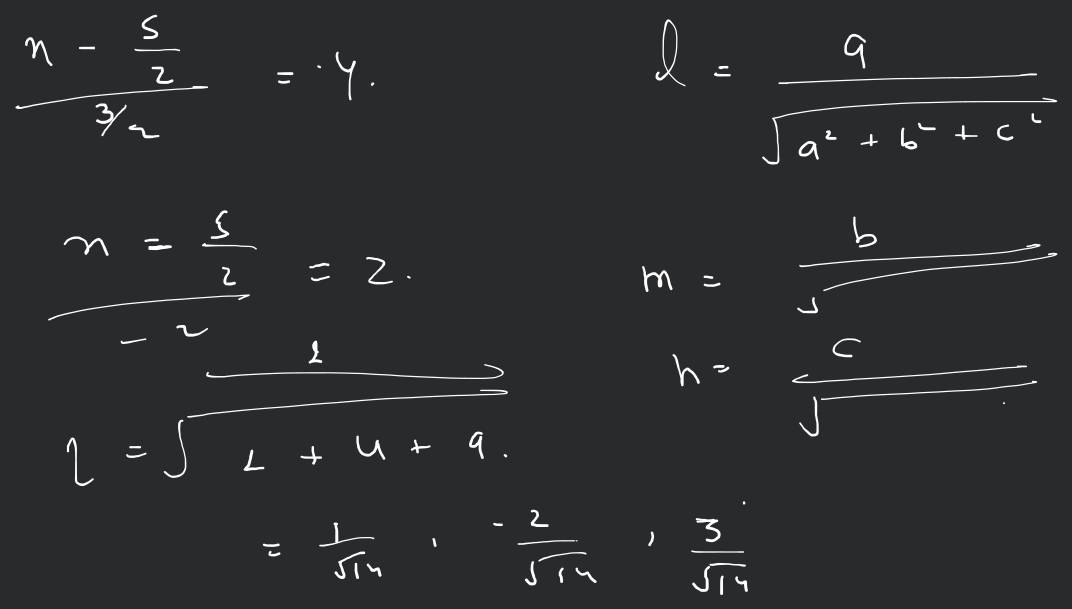 (n - 5/2) / (3/2) = ·y.
l = a / √(a² + b² + c²)
(n = 5/2) / (-2) = 2.
m = b / √
n = c / √
l = 1 / √(1 + 4 + 9).
= 1/√14 , -2/√14 , 3/√14